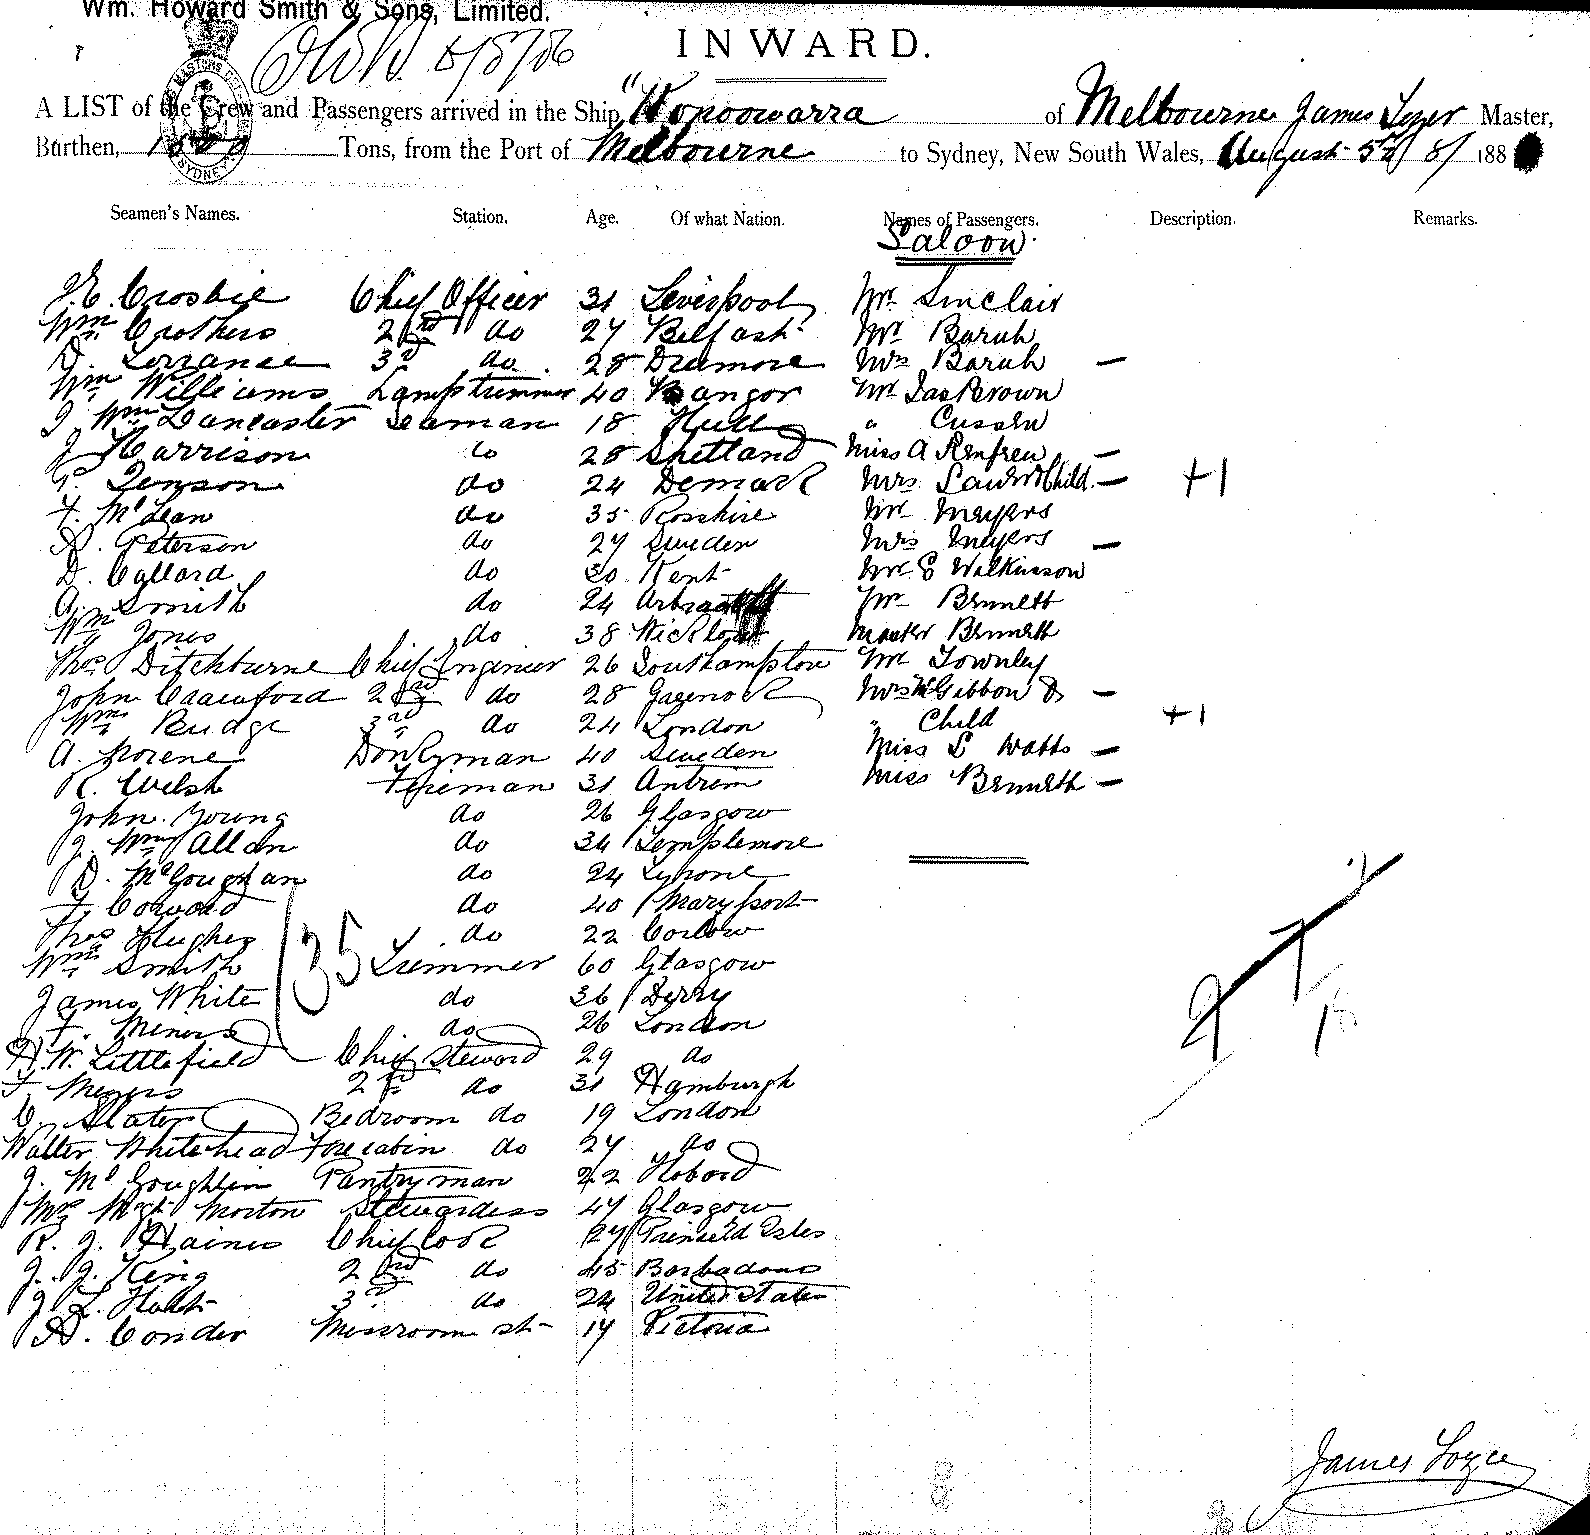 Wm. Howard Smith & Sons, Limited.
INWARD.
A LIST of the Crew and Passengers arrived in the Ship "Wonoowarra of Melbourne James Master,
Burthen, Tons, from the Port of Melbourne to Sydney, New South Wales, August 5th 188
Seamen's Names. Station. Age. Of what Nation. Names of Passengers. Description. Remarks.
Saloon
J.E. Crosbie Chief Officer 31 Liverpool Mr Sinclair
Wm Crothers 2nd do 27 Belfast Mr Barah
D. Lorrance 3rd do 28 Dromore Mrs Barah —
Wm Williams Lamptrimmer 40 Bangor Mr Jas Brown
J. Wm Lancaster Seaman 18 Hull " Cussen
J Harrison do 28 Shetland Miss A Renfrew —
Jenson do 24 Demark Mrs Child — +1
F. McLean do 35 Rosshire Mr Meyers
A. Peterson do 27 Sweden Mrs Meyers —
D. Collard do 30 Kent Mr E Walkinson
A. Smith do 24 Mr Bennett
Wm Jones do 38 Wicklow Master Bennett
Thos Ditchburne Chief Engineer 26 Southampton Mr Townley
John Crawford 2nd do 28 Greenock Mrs McGibbon & —
Wm Budge 3rd do 24 London " Child +1
A. Morene Donkyman 40 Sweden Miss L Watts —
R. Welsh Fireman 31 Antrim Miss Bennett —
John Young do 26 Glasgow
J. Wm Allan do 34 Templemore
D. McGoughan do 24 Tyrone
F. Coward do 40 Maryport
Thos Hughes do 22 Carlow
Wm Smith 35 Trimmer 60 Glasgow
James White do 36 Derry
F. Meners do 26 London
H.W. Littlefield Chief Steward 29 do
F. Meyers 2nd do 31 Hamburgh
C. Slater Bedroom do 19 London
Walter Whitehead Forecabin do 27 do
J. McGoughlin Pantryman 22 Hobard
Mrs Mgt Morton Stewardess 47 Glasgow
R. J. Haines Chief Cook 27 Isles
J. J. King 2nd do 45 Barbadous
J L. Holt 3rd do 24 United States
A. Conder Messroom st 17 Victoria
James